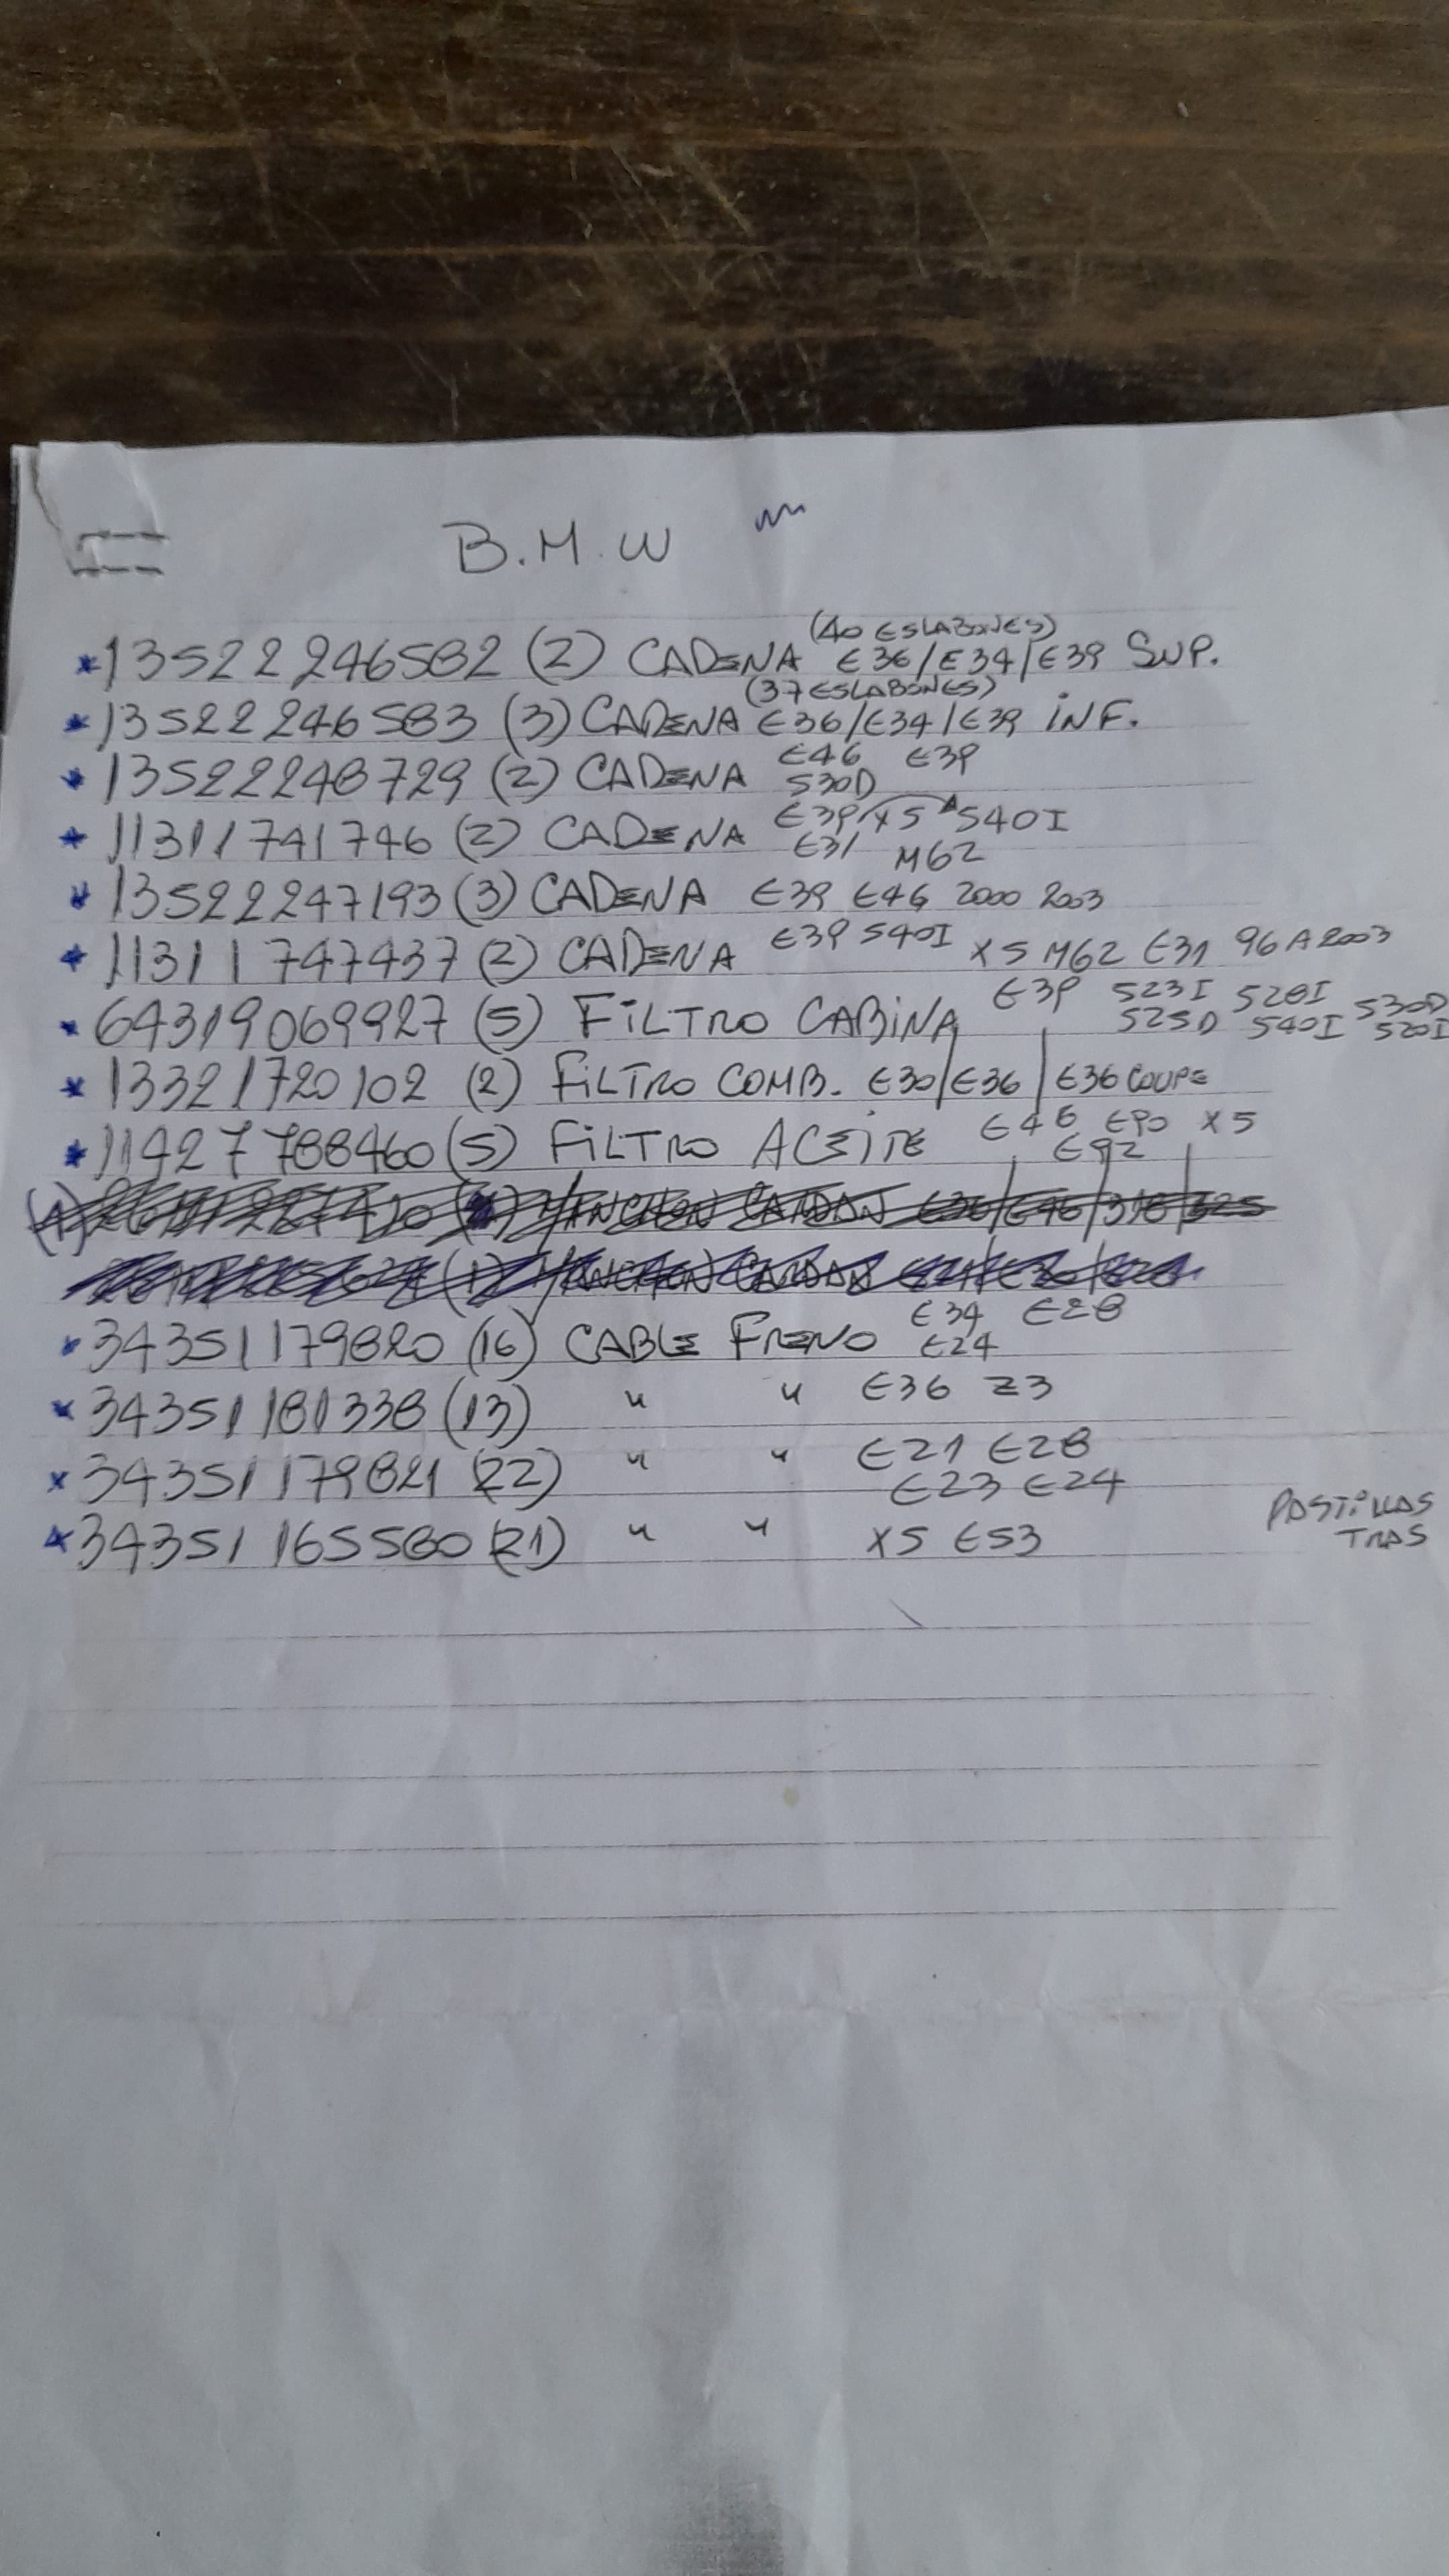 B.M.W
(40 ESLABONES)
*13522246582 (2) CADENA E36/E34/E39 SUP.
(37 ESLABONES)
*13522246583 (3) CADENA E36/E34/E39 INF.
*13522248729 (2) CADENA E46 E39
530D
*11311741746 (2) CADENA E39 X5 540I
E31 M62
*13522247193 (3) CADENA E39 E46 2000 2003
*11311747437 (2) CADENA E39 540I X5 M62 E31 96 A 2003
*64319069927 (5) FILTRO CABINA E39 523I 528I 530D
525D 540I 520I
*13321720102 (2) FILTRO COMB. E30/E36/E36 COUPE
*11427788460 (5) FILTRO ACEITE E46 E90 X5
E92
*34351179820 (16) CABLE FRENO E34 E28
E24
*34351181338 (13) " " E36 Z3
*34351179821 (22) " " E21 E28
E23 E24
*34351165580 (21) " " X5 E53
PASTILLAS
TRAS